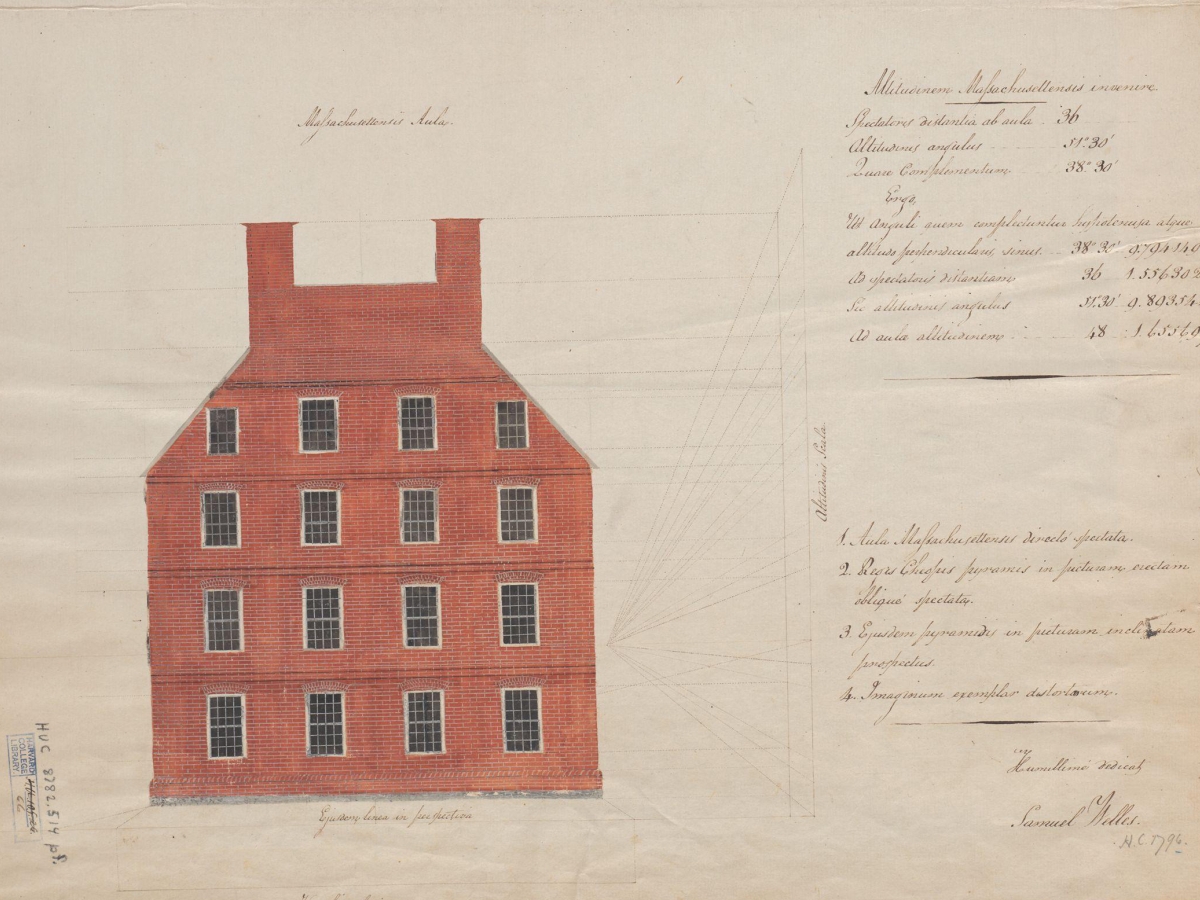 Massachusettensis Aula.
Altitudinem Massachusettensis invenire.
Spectatoris distantia ab aula . 36
Altitudinis angulus 51°.30'
Quare Complementum 38°.30'
Ergo,
Ut Anguli quem complectuntur hypotenusa atque
altitudo perpendicularis, sinus. 38°.30' 9.794140
Ad spectatoris distantiam 36 1.556302
Sic altitudinis angulus 51°.30' 9.89354
Ad aulæ altitudinem 48 1.6556
Altitudinis Scala.
1. Aula Massachusettensis directè spectata.
2. Regis Cheopis pyramis in picturam erectam
obliquè spectata.
3. Ejusdem pyramidis in picturam inclinatam
prospectus.
4. Imaginum exemplar distortarum.
Humillimè dedicat
Samuel Welles.
H.C. 1796.
Ejusdem linea in perspectiva
HUC 8782.514 pf.
HARVARD
COLLEGE
LIBRARY
22